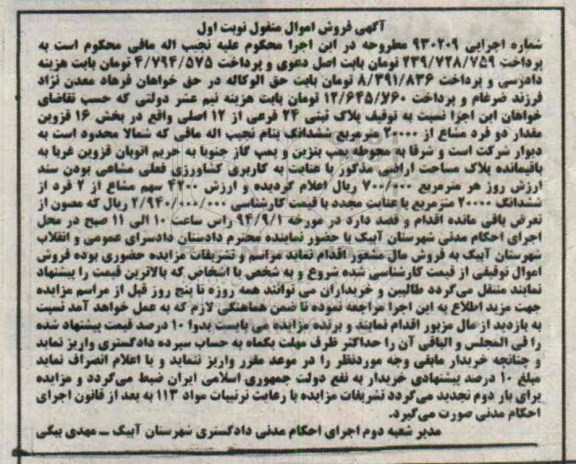 آگهی فروش اموال منقول نوبت اول
شماره اجرایی ۹۳۰۲۰۹ مطروحه در این اجرا محکوم علیه نجیب اله مافی محکوم است به
پرداخت ۲۳۹/۷۲۸/۷۵۹ تومان بابت اصل دعوی و پرداخت ۴/۷۹۴/۵۷۵ تومان بابت هزینه
دادرسی و پرداخت ۸/۳۹۱/۸۳۶ تومان بابت حق الوکاله در حق خواهان فرهاد معدن نژاد
فرزند ضرغام و پرداخت ۱۲/۶۴۵/۷۶۰ تومان بابت هزینه نیم عشر دولتی که حسب تقاضای
خواهان این اجرا نسبت به توقیف پلاک ثبتی ۲۴ فرعی از ۱۲ اصلی واقع در بخش ۱۶ قزوین
مقدار دو فرد مشاع از ۲۰۰۰۰ مترمربع ششدانگ بنام نجیب اله مافی که شمالا محدود است به
دیوار شرکت است و شرقا به محوطه پمپ بنزین و پمپ گاز جنوبا به حریم اتوبان قزوین غربا به
باقیمانده پلاک مساحت اراضی مذکور با عنایت به کاربری کشاورزی فعلی مشاعی بودن سند
ارزش روز هر مترمربع ۷۰۰/۰۰۰ ریال اعلام گردیده و ارزش ۴۲۰۰ سهم مشاع از ۲ فرد از
ششدانگ ۲۰۰۰۰ مترمربع با عنایت مجدد با قیمت کارشناسی ۲/۹۴۰/۰۰۰/۰۰۰ ریال که مصون از
تعرض باقی مانده اقدام و قصد دارد در مورخه ۹۴/۹/۱ راس ساعت ۱۰ الی ۱۱ صبح در محل
اجرای احکام مدنی شهرستان آبیک با حضور نماینده محترم دادستان دادسرای عمومی و انقلاب
شهرستان آبیک به فروش مال مشعور اقدام نماید مراسم و تشریفات مزایده حضوری بوده فروش
اموال توقیفی از قیمت کارشناسی شده شروع و به شخص یا اشخاص که بالاترین قیمت را پیشنهاد
نمایند منتقل می گردد طالبین و خریداران می توانند همه روزه تا پنج روز قبل از مراسم مزایده
جهت مزید اطلاع به این اجرا مراجعه نموده تا ضمن هماهنگی لازم که به عمل خواهد آمد نسبت
به بازدید از مال مزبور اقدام نمایند و برنده مزایده می بایست بدوا ۱۰ درصد قیمت پیشنهاد شده
را فی المجلس و الباقی آن را حداکثر ظرف مهلت یکماه به حساب سپرده دادگستری واریز نماید
و چنانچه خریدار مابقی وجه موردنظر را در موعد مقرر واریز ننماید و یا اعلام انصراف نماید
مبلغ ۱۰ درصد پیشنهادی خریدار به نفع دولت جمهوری اسلامی ایران ضبط می گردد و مزایده
برای بار دوم تجدید می گردد تشریفات مزایده با رعایت ترتیبات مواد ۱۱۳ به بعد از قانون اجرای
احکام مدنی صورت می گیرد.
مدیر شعبه دوم اجرای احکام مدنی دادگستری شهرستان آبیک ــ مهدی بیگی